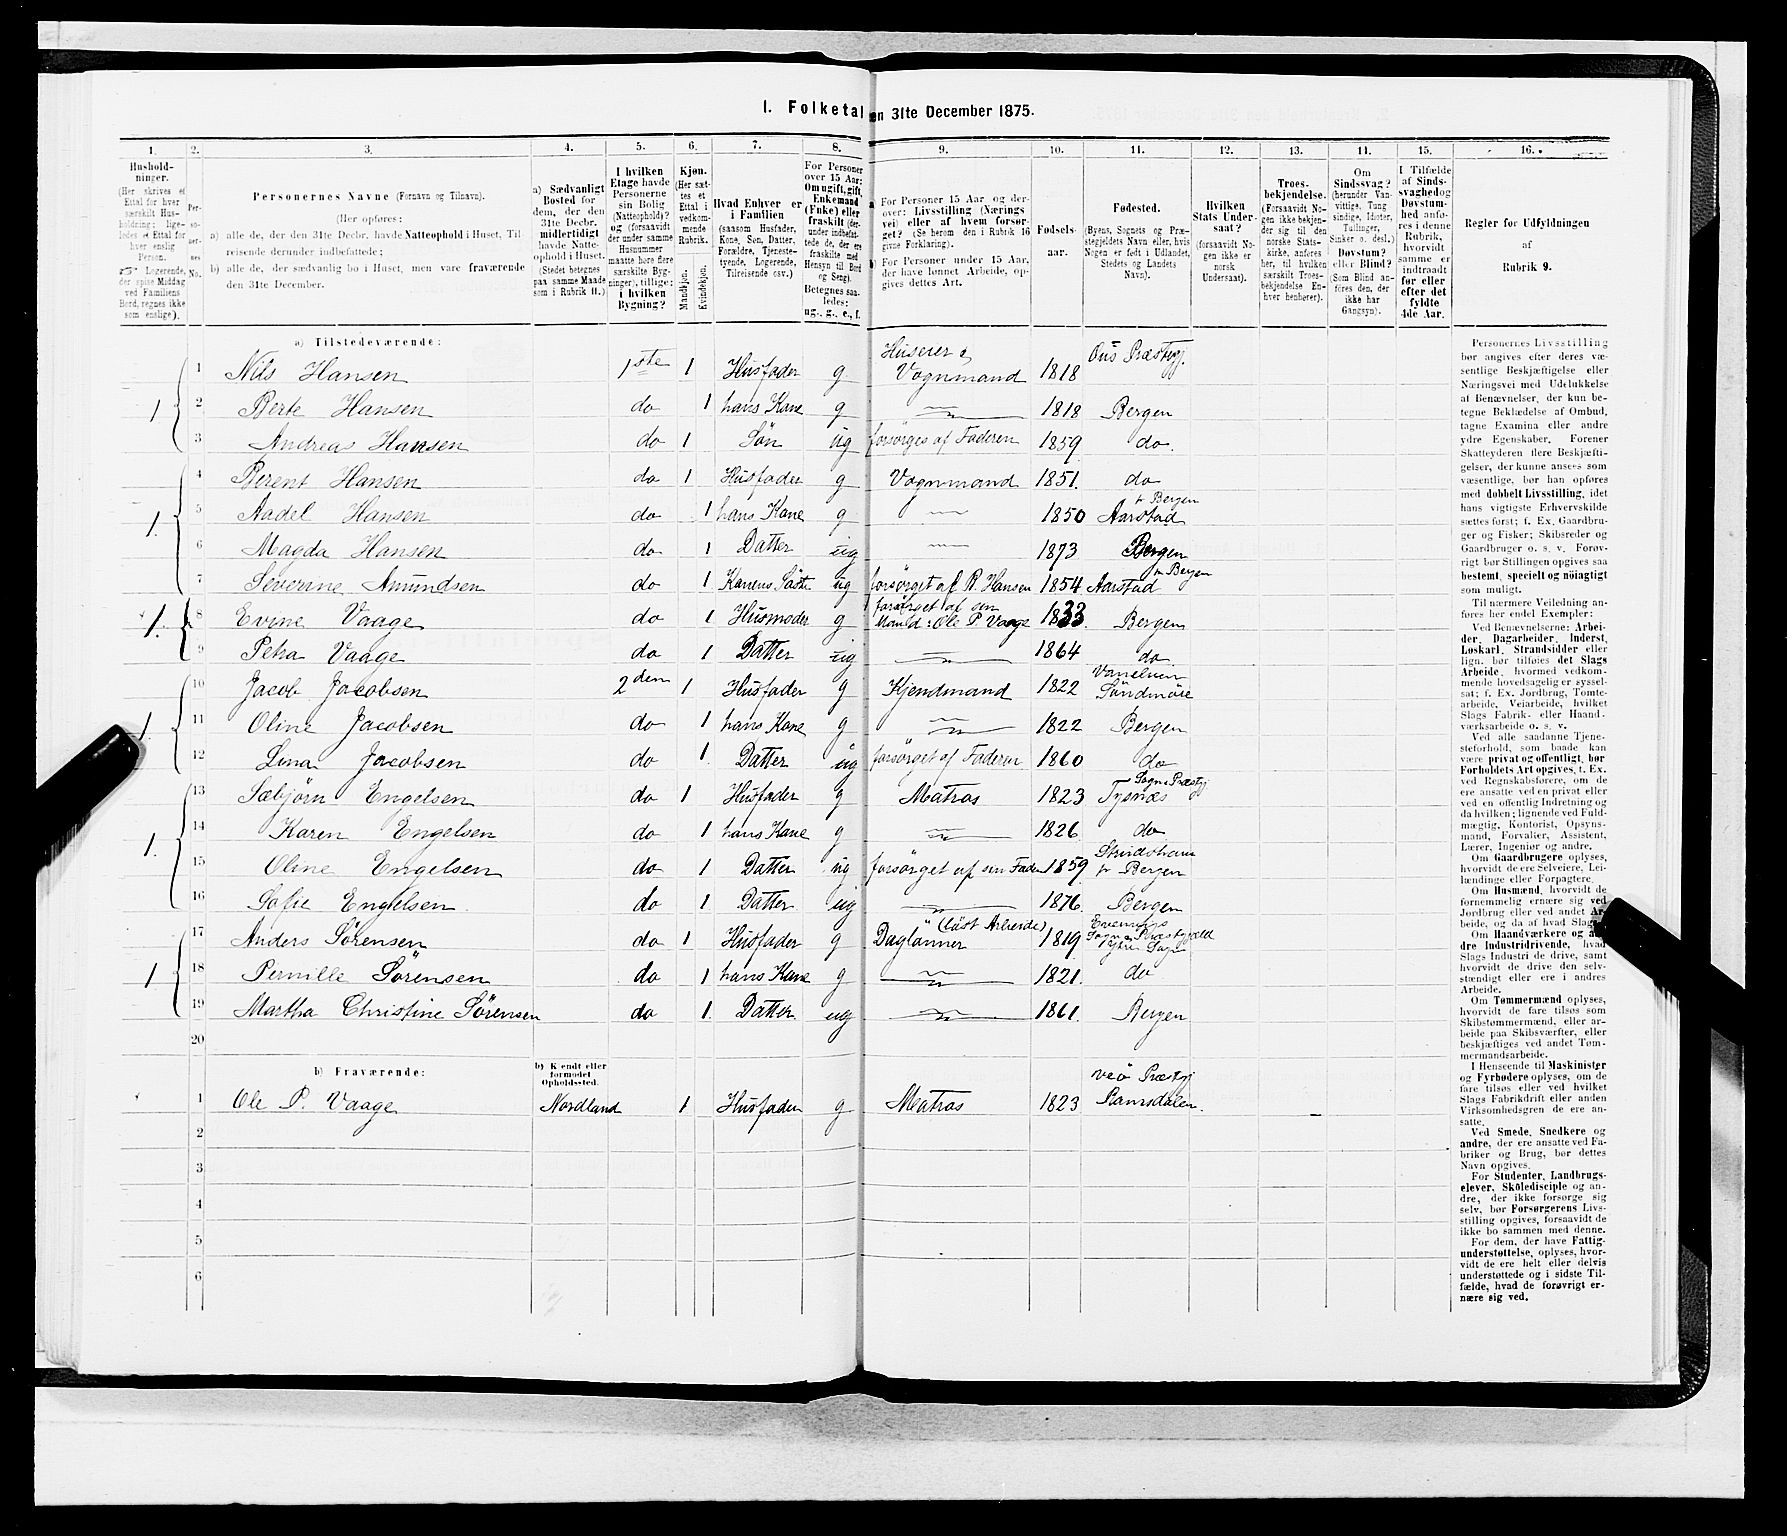 I. Folketal den 31te December 1875.
1. 2. 3. 4. 5. 6. 7. 8. 9. 10. 11. 12. 13. 11. 15. 16.
Hushold-
ninger.
(Her skrives et
Ettal for hver
særskilt Hus-
holdning; lige-
ledes et Ettal for
hver enslig
Person.
☞ Logerende,
der spise Middag
ved Familiens
Bord, regnes ikke
som enslige).
Per-
so-
ner-
nes
No.
Personernes Navne (Fornavn og Tilnavn).
(Her opføres:
a) alle de, der den 31te Decbr. havde Natteophold i Huset, Til-
reisende derunder indbefattede;
b) alle de, der sædvanlig bo i Huset, men vare fraværende
den 31te December.
a) Sædvanligt
Bosted for
dem, der den
31te Decbr.
midlertidigt
havde Natte-
ophold i Huset.
(Stedet betegnes
paa samme Maade
som i Rubrik 11.)
I hvilken
Etage havde
Personerne
sin Bolig
(Natteophold)?
og (forsaavidt
der under samme
Husnummer
maatte høre flere
særskilte Byg-
ninger), tillige:
i hvilken
Bygning?
Kjøn.
(Her sæt-
tes et
Ettal i
vedkom-
mende
Rubrik.
Mandkjøn.
Kvindekjøn.
Hvad Enhver er
i Familien
(saasom Husfader,
Kone, Søn, Datter,
Forældre, Tjeneste-
tyende, Logerende,
Tilreisende osv.)
For Personer
over 15 Aar:
Om ugift, gift,
Enkemand
(Enke) eller
fraskilt (der-
under indbefat-
tede de, der ere
fraskilte med
Hensyn til Bord
og Seng).
Betegnes saa-
ledes:
ug., g., e., f.
a For Personer 15 Aar og der-
over: Livsstilling (Nærings
vei) eller af hvem forsør-
get? (Se herom den i Rubrik 16
givne Forklaring).
b For Personer under 15 Aar,
der have lønnet Arbeide, op-
gives dettes Art.
Fødsels-
aar.
Fødested.
(Byens, Sognets og Præ-
stegjeldets Navn eller, hvis
Nogen er født i Udlandet,
Stedets og Landets
Navn).
Hvilken
Stats Under-
saat?
(forsaavidt No-
gen ikke er
norsk
Undersaat).
Troes-
bekjendelse.
(Forsaavidt No-
gen ikke bekjen-
der sig til den
norske Stats-
kirke, anføres
her, til hvilken
særskilt Troes-
bekjendelse En-
hver henhører).
Om
Sindssvag?
(herunder Van-
vittige, Tung
sindige, Idioter,
Tullinger,
Sinker o. desl.)
Døvstum?
eller Blind?
(Som Blind an-
føres den, der
ikke har
Gangsyn).
I Tilfælde
af Sinds-
svaghed og
Døvstum-
hed anfø-
res i denne
Rubrik,
hvorvidt
samme er
indtraadt
før eller
efter det
fyldte
4de Aar.
Regler for Udfyldningen
af
Rubrik 9.
a) Tilstedeværende:
1 1 Nils Hansen 1ste 1 Husfader g Huseier & Vognmand 1818 Ous Præstegj.
2 Berte Hansen do 1 hans Kone g 1818 Bergen
3 Andreas Hansen do 1 Søn ug forsørges af Faderen 1859 do.
1. 4 Berent Hansen do 1 Husfader g Vognmand 1851. do
5 Aadel Hansen do 1 hans Kone g 1850 Aarstad v Bergen
6 Magda Hansen do 1 Datter ug 1873 Bergen
7 Severine Amundsen do 1 Konens Søster ug forsørget af B. Hansen 1854 Aarstad v Bergen
1. 8 Evine Vaage do 1 Husmoder g forsørget af sin Mand: Ole P. Vaage 1833 Bergen
9 Petra Vaage do 1 Datter ug 1864 do
1. 10 Jacob Jacobsen 2den 1 Husfader g Kjendmand 1822 Vanelven Søndmøre
11 Oline Jacobsen do 1 hans Kone g 1822 Bergen
12 Lina Jacobsen do 1 Datter ug forsørget af Faderen 1860 do
1. 13 Sæbjørn Engelsen do 1 Husfader g Matros 1823 Tysnæs Sogn & Præstgj
14 Karen Engelsen do 1 hans Kone g 1826 do
15 Oline Engelsen do 1 Datter ug. forsørget af sin Fader 1859 v Bergen
16 Sofie Engelsen do 1 Datter ug 1876 Bergen
1 17 Anders Sørensen do 1 Husfader g Daglønner (løst Arbeide) 1819 Sogn & Præstegjæld Ytre Sogn
18 Pernille Sørensen do 1 hans Kone g 1821. do
19 Martha Christine Sørensen do 1. Datter ug 1861. Bergen
20
b) Fraværende:
b) Kjendt eller
formodet
Opholdssted.
1 Ole P. Vaage Nordland 1 Husfader g Matros 1823 Veø Præstgj Ramsdalen.
2
3
4
5
6
Personernes Livsstilling
bør angives efter deres væ-
sentlige Beskjæftigelse eller
Næringsvei med Udelukkelse
af Benævnelser, der kun be-
tegne Beklædelse af Ombud,
tagne Examina eller andre
ydre Egenskaber. Forener
Skatteyderen flere Beskjæfti-
gelser, der kunne ansees som
væsentlige, bør han opføres
med dobbelt Livsstilling, idet
hans vigtigste Erhvervskilde
sættes først; f. Ex. Gaardbru-
ger og Fisker; Skibsreder og
Gaardbruger o. s. v. Forøv-
rigt bør Stillingen opgives saa
bestemt, specielt og nöiagtigt
som muligt.
Til nærmere Veiledning an-
føres her endel Exempler:
Ved Benævnelserne: Arbei-
der, Dagarbeider, Inderst,
Løskarl, Strandsidder eller
lign. bør tilføies det Slags
Arbeide, hvormed vedkom-
mende hovedsagelig er syssel-
sat; f. Ex. Jordbrug, Tomte-
arbeide, Veiarbeide, hvilket
Slags Fabrik- eller Haand-
værksarbeide o. s. v.
Ved alle saadanne Tjene-
steforhold, som baade kan
være privat og offentligt, bør
Forholdets Art opgives, f. Ex.
ved Regnskabsførere, om de
ere ansatte ved en privat eller
ved en offentlig Indretning og
da hvilken; lignende ved Fuld-
mægtig, Kontorist, Opsyns-
mand, Forvalter, Assistent,
Lærer, Ingeniør og andre.
Om Gaardbrugere oplyses,
hvorvidt de ere Selveiere, Lei-
lændinge eller Forpagtere.
Om Husmænd, hvorvidt de
fornemmelig ernære sig ved
Jordbrug eller ved andet Ar-
beide, og da af hvad Slags.
Om Haandværkere og an-
dre Industridrivende, hvad
Slags Industri de drive, samt
hvorvidt de drive den selv-
stændigt eller ere i andres
Arbeide.
Om Tømmermænd oplyses,
hvorvidt de fare tilsøs som
Skibstømmermænd, eller ar-
beide paa Skibsværfter, eller
beskjæftiges ved andet Tøm-
mermandsarbeide.
I Henseende til Maskinister
og Fyrbødere oplyses, om de
fare tilsøs eller ved hvilket
Slags Fabrikdrift eller anden
Virksomhedsgren de ere an-
satte.
Ved Smede, Snedkere og
andre, der ere ansatte ved Fa-
briker og Brug, bør dettes
Navn opgives.
For Studenter, Landbrugs-
elever, Skoledisciple og an-
dre, der ikke forsørge sig
selv, bør Forsørgerens Livs-
stilling opgives, forsaavidt de
ikke bo sammen med denne.
For dem, der have Fattig-
understøttelse, oplyses, hvor-
vidt de ere helt eller delvis
understøttede og i sidste Til-
fælde, hvad de forøvrigt er-
nære sig ved.